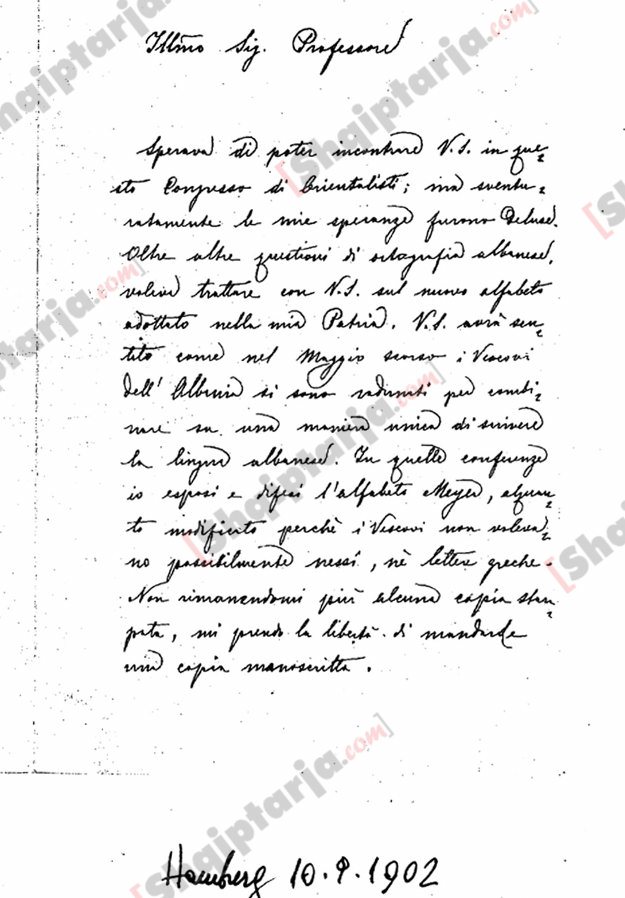 Illmo Sig. Professore
Sperava di poter incontrare V.S. in que-
sto Congresso di Orientalisti; ma sventu-
ratamente le mie speranze furono deluse.
Oltre altre questioni di ortografia albanese,
voleva trattare con V.S. sul nuovo alfabeto
adottato nella mia Patria. V.S. avrà sen-
tito come nel Maggio scorso i Vescovi
dell' Albania si sono radunati per combi-
nare su una maniera unica di scrivere
la lingua albanese. In quelle conferenze
io esposi e difesi l'alfabeto Meyer, alquan-
to modificato perchè i Vescovi non voleva-
no possibilmente nessi, nè lettere greche.
Non rimanendomi più alcuna copia stam-
pata, mi prendo la libertà di mandarle
una copia manoscritta.
Hamburg 10.9.1902
[Shqiptarja.com]
[Shqiptarja.com]
[Shqiptarja.com]
[Shqiptarja.com]
[Shqiptarja.com]